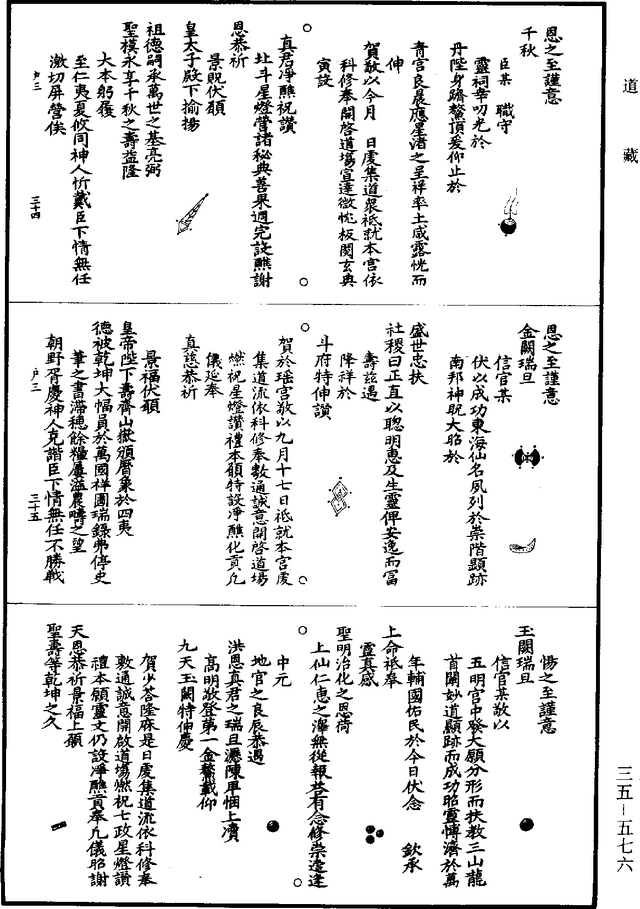 道藏
恩之至謹意
千秋
臣某　職守
靈祠幸叨光於
丹陛身躋鰲頂爰仰止於
青宮良晨應星渚之呈祥率土咸露恍而
伸
賀敬以今月　日虔集道眾祇就本宮依
科修奉開啓道場宣達微忱板閱玄典
寅設
真君凈醮祝讚
北斗星燈營諸秘典善果週完設醮謝
恩恭祈
景貺伏願
皇太子殿下揄揚
祖德嗣承萬世之基亮弼
聖樸永享千秋之壽益隆
大本躬履
至仁夷夏攸同神人忻戴臣下情無任
激切屏營俟
户三　三十四
恩之至謹意
金闕瑞旦
信官某
伏以成功東海仙名夙列於崇階顯跡
南邦神貺大昭於
盛世忠扶
社稷曰正直以聰明惠及生靈俾安逸而富
壽茲遇
降祥於
斗府特伸讚
賀於瑤宮敬以九月十七日祗就本宮虔
集道流依科修奉敷通誠意開啓道場
燃祝星燈讚禮本願特設凈醮化貢凡
儀延奉
真慈恭祈
景福伏願
皇帝陛下壽齊山嶽頒曆象於四夷
德被乾坤大幅員於萬國祥圖瑞錄弗停史
筆之書滯穗餘糧屢溢農疇之望
朝野胥慶神人克諧臣下情無任不勝戰
户三　三十五
惕之至謹意
玉闕瑞旦
信官某敬以
五明宮中發大願分形而扶教三山龍
首闡妙道顯跡而成功昭靈慱濟於萬
年輔國佑民於今日伏念　欽承
上命祗奉
靈真感
聖明治化之恩荷
上仙仁惠之澤無從報荅有念修崇遠逢
中元
地官之良辰恭遇
洪恩真君之瑞旦瀝陳卑悃上瀆
高明敬登第一金鰲載仰
九天玉闕特伸慶
賀少荅隆庥是日虔集道流依科修奉
敷通誠意開啟道場燃祝七政星燈讚
禮本願靈文仍設凈醮貢奉凡儀昭謝
天恩恭祈景福上願
聖壽等乾坤之久
三五－五七六